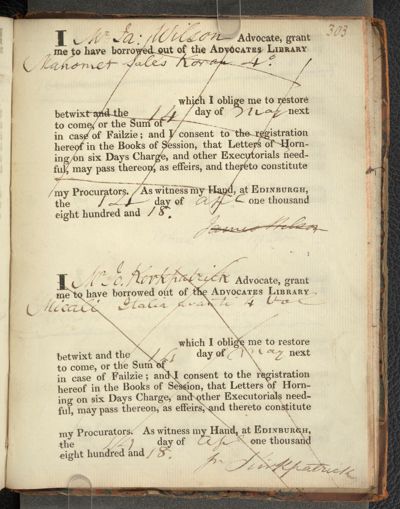 303
I Mr Ja: Wilson Advocate, grant
me to have borrowed out of the ADVOCATES LIBRARY
Mahomet Sales Koran 4o
which I oblige me to restore
betwixt and the 14 day of May next
to come, or the Sum of
in case of Failzie; and I consent to the registration
hereof in the Books of Session, that Letters of Horn-
ing on six Days Charge, and other Executorials need-
ful, may pass thereon, as effeirs, and thereto constitute
my Procurators. As witness my Hand, at EDINBURGH,
the day of one thousand
eight hundred and 18.
James Wilson
I Mr Jo. Kirkpatrick Advocate, grant
me to have borrowed out of the ADVOCATES LIBRARY
Micali Italia avanti 4 Vol
which I oblige me to restore
betwixt and the day of May next
to come, or the Sum of
in case of Failzie; and I consent to the registration
hereof in the Books of Session, that Letters of Horn-
ing on six Days Charge, and other Executorials need-
ful, may pass thereon, as effeirs, and thereto constitute
my Procurators. As witness my Hand, at EDINBURGH,
the day of one thousand
eight hundred and 18.
Jo Kirkpatrick